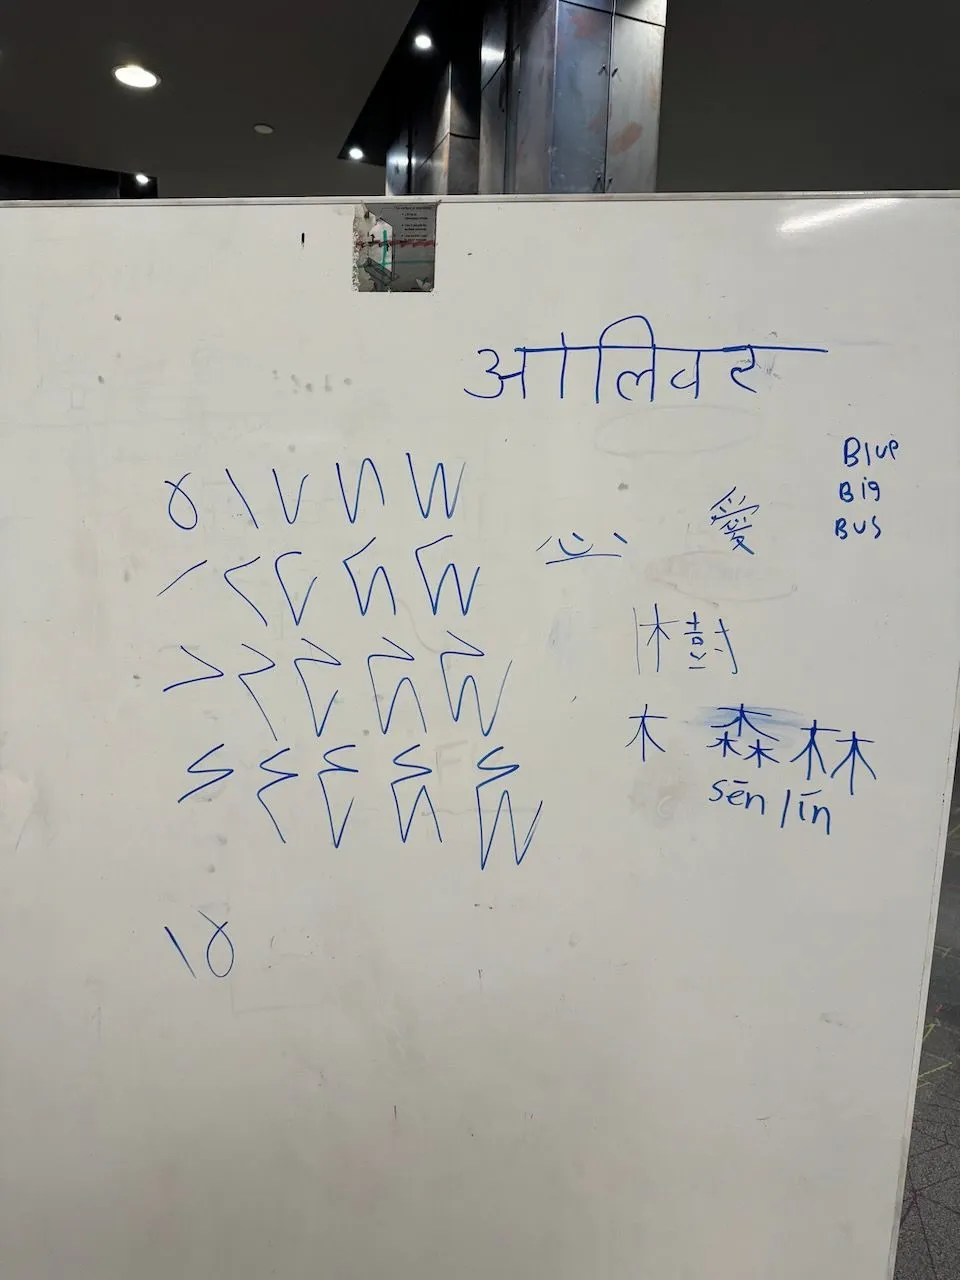 आलिवर
Blue
Big
Bus
𝋀 𝋁 𝋂 𝋃 𝋄
𝋅 𝋆 𝋇 𝋈 𝋉
𝋊 𝋋 𝋌 𝋍 𝋎
𝋏 𝋐 𝋑 𝋒 𝋓
𝋁𝋀
愛
樹
木 森林
sēn līn